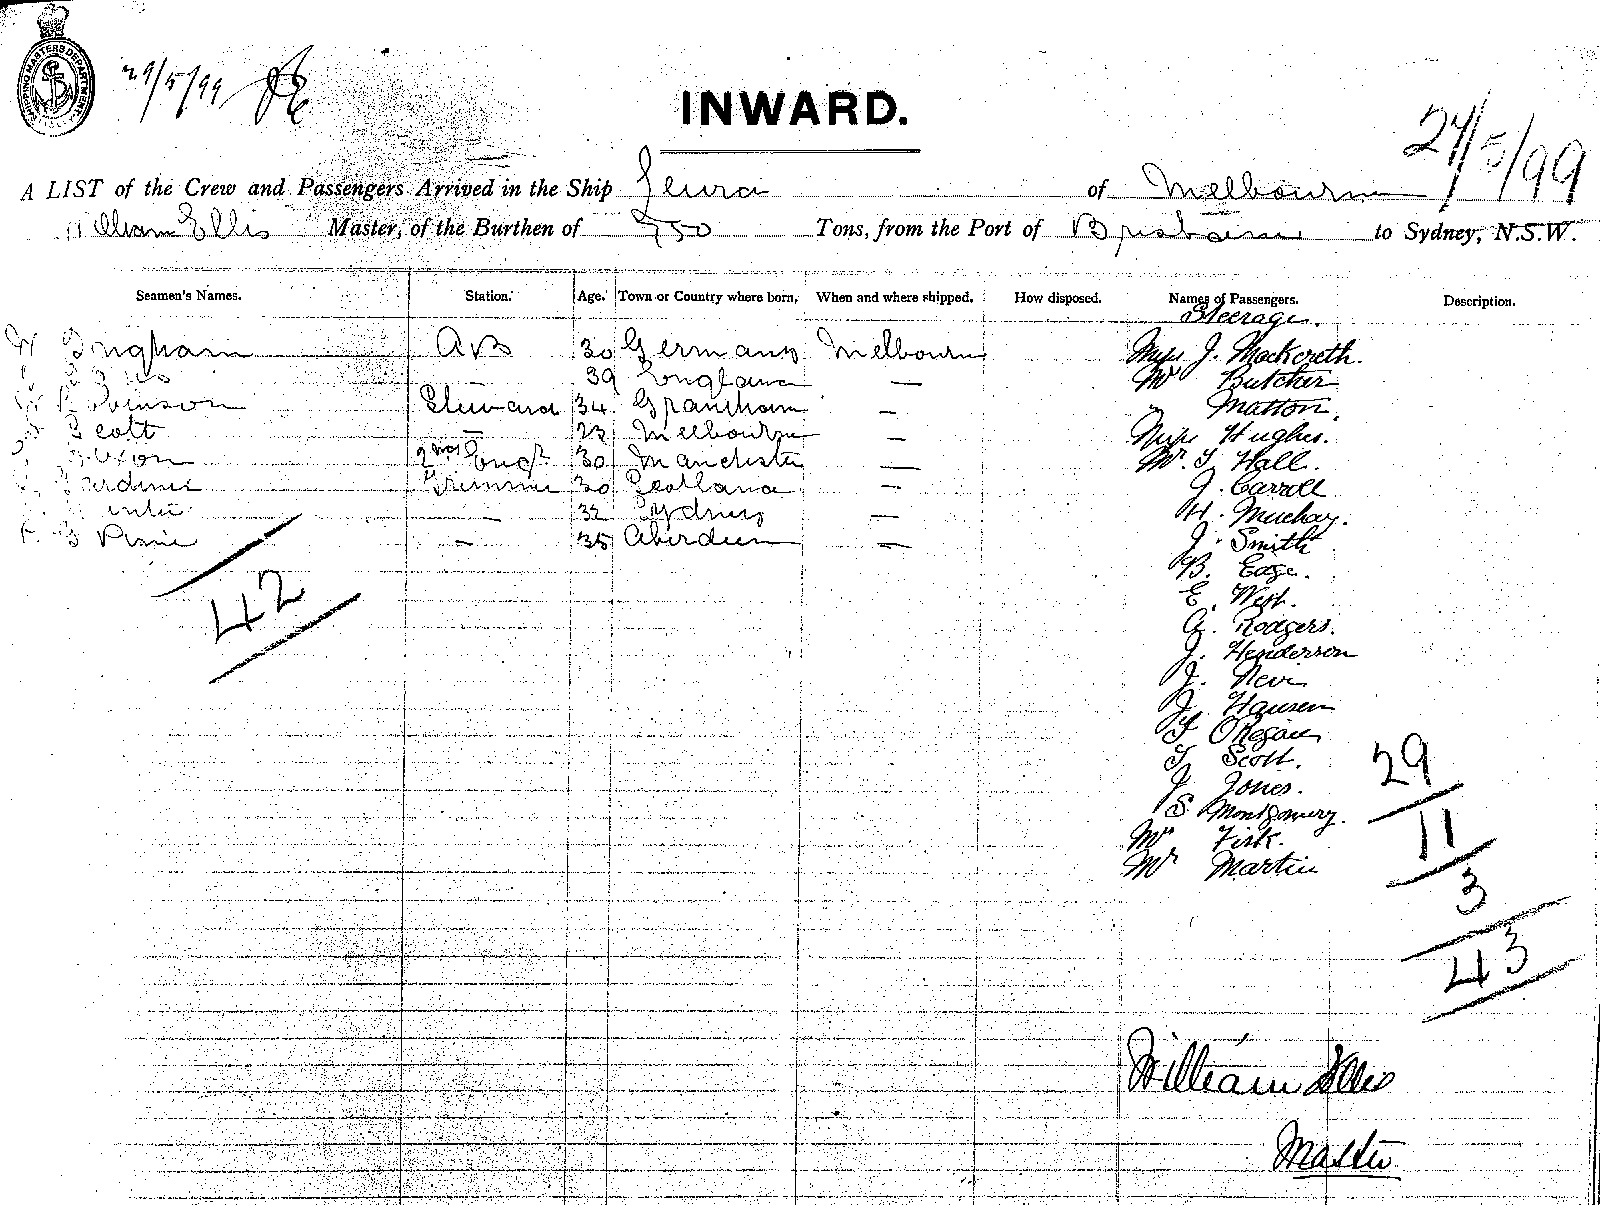 29/5/99
INWARD.
27/5/99
A LIST of the Crew and Passengers Arrived in the Ship Leura of Melbourne
William Ellis Master, of the Burthen of 750 Tons, from the Port of Brisbane to Sydney, N.S.W.
Seamen's Names. Station. Age. Town or Country where born, When and where shipped. How disposed. Names of Passengers. Description.
Steerage.
Ingham AB 30 Germany Melbourne Miss J. Mackereth.
39 England — Mr Butcher
Robinson Steward 34 Grantham — " Matton.
Scott — 23 Melbourne — Miss Hughes.
2nd Engr 30 Manchester — Mr. T. Hall.
Gardiner Trimmer 30 Scotland — J. Carroll
— 32 Sydney — H. Muchay.
Pirie — 35 Aberdeen — J. Smith
B. Edge.
42
E. West.
A. Rodgers.
J. Henderson
J. Neve
J. Hansen
T O'Regan
T. Scott.
29
J Jones.
S. Montgomery.
11
Mr Fisk.
Mr Martin
3
43
William Ellis
Master